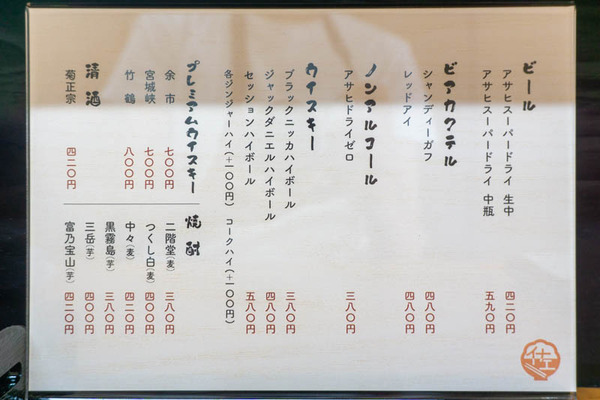 ビール
アサヒスーパードライ 生中 四二〇円
アサヒスーパードライ 中瓶 五九〇円
ビアカクテル
シャンディーガフ 四八〇円
レッドアイ 四八〇円
ノンアルコール
アサヒドライゼロ 三八〇円
ウイスキー
ブラックニッカハイボール 三八〇円
ジャックダニエルハイボール 四八〇円
セッションハイボール 五八〇円
各ジンジャーハイ(+一〇〇円) コークハイ(+一〇〇円)
プレミアムウイスキー
余市 七〇〇円
宮城峡 七〇〇円
竹鶴 八〇〇円
清酒
菊正宗 四二〇円
焼酎
二階堂(麦) 三八〇円
つくし白(麦) 四〇〇円
中々(麦) 四二〇円
黒霧島(芋) 三八〇円
三岳(芋) 四〇〇円
富乃宝山(芋) 四二〇円
佐